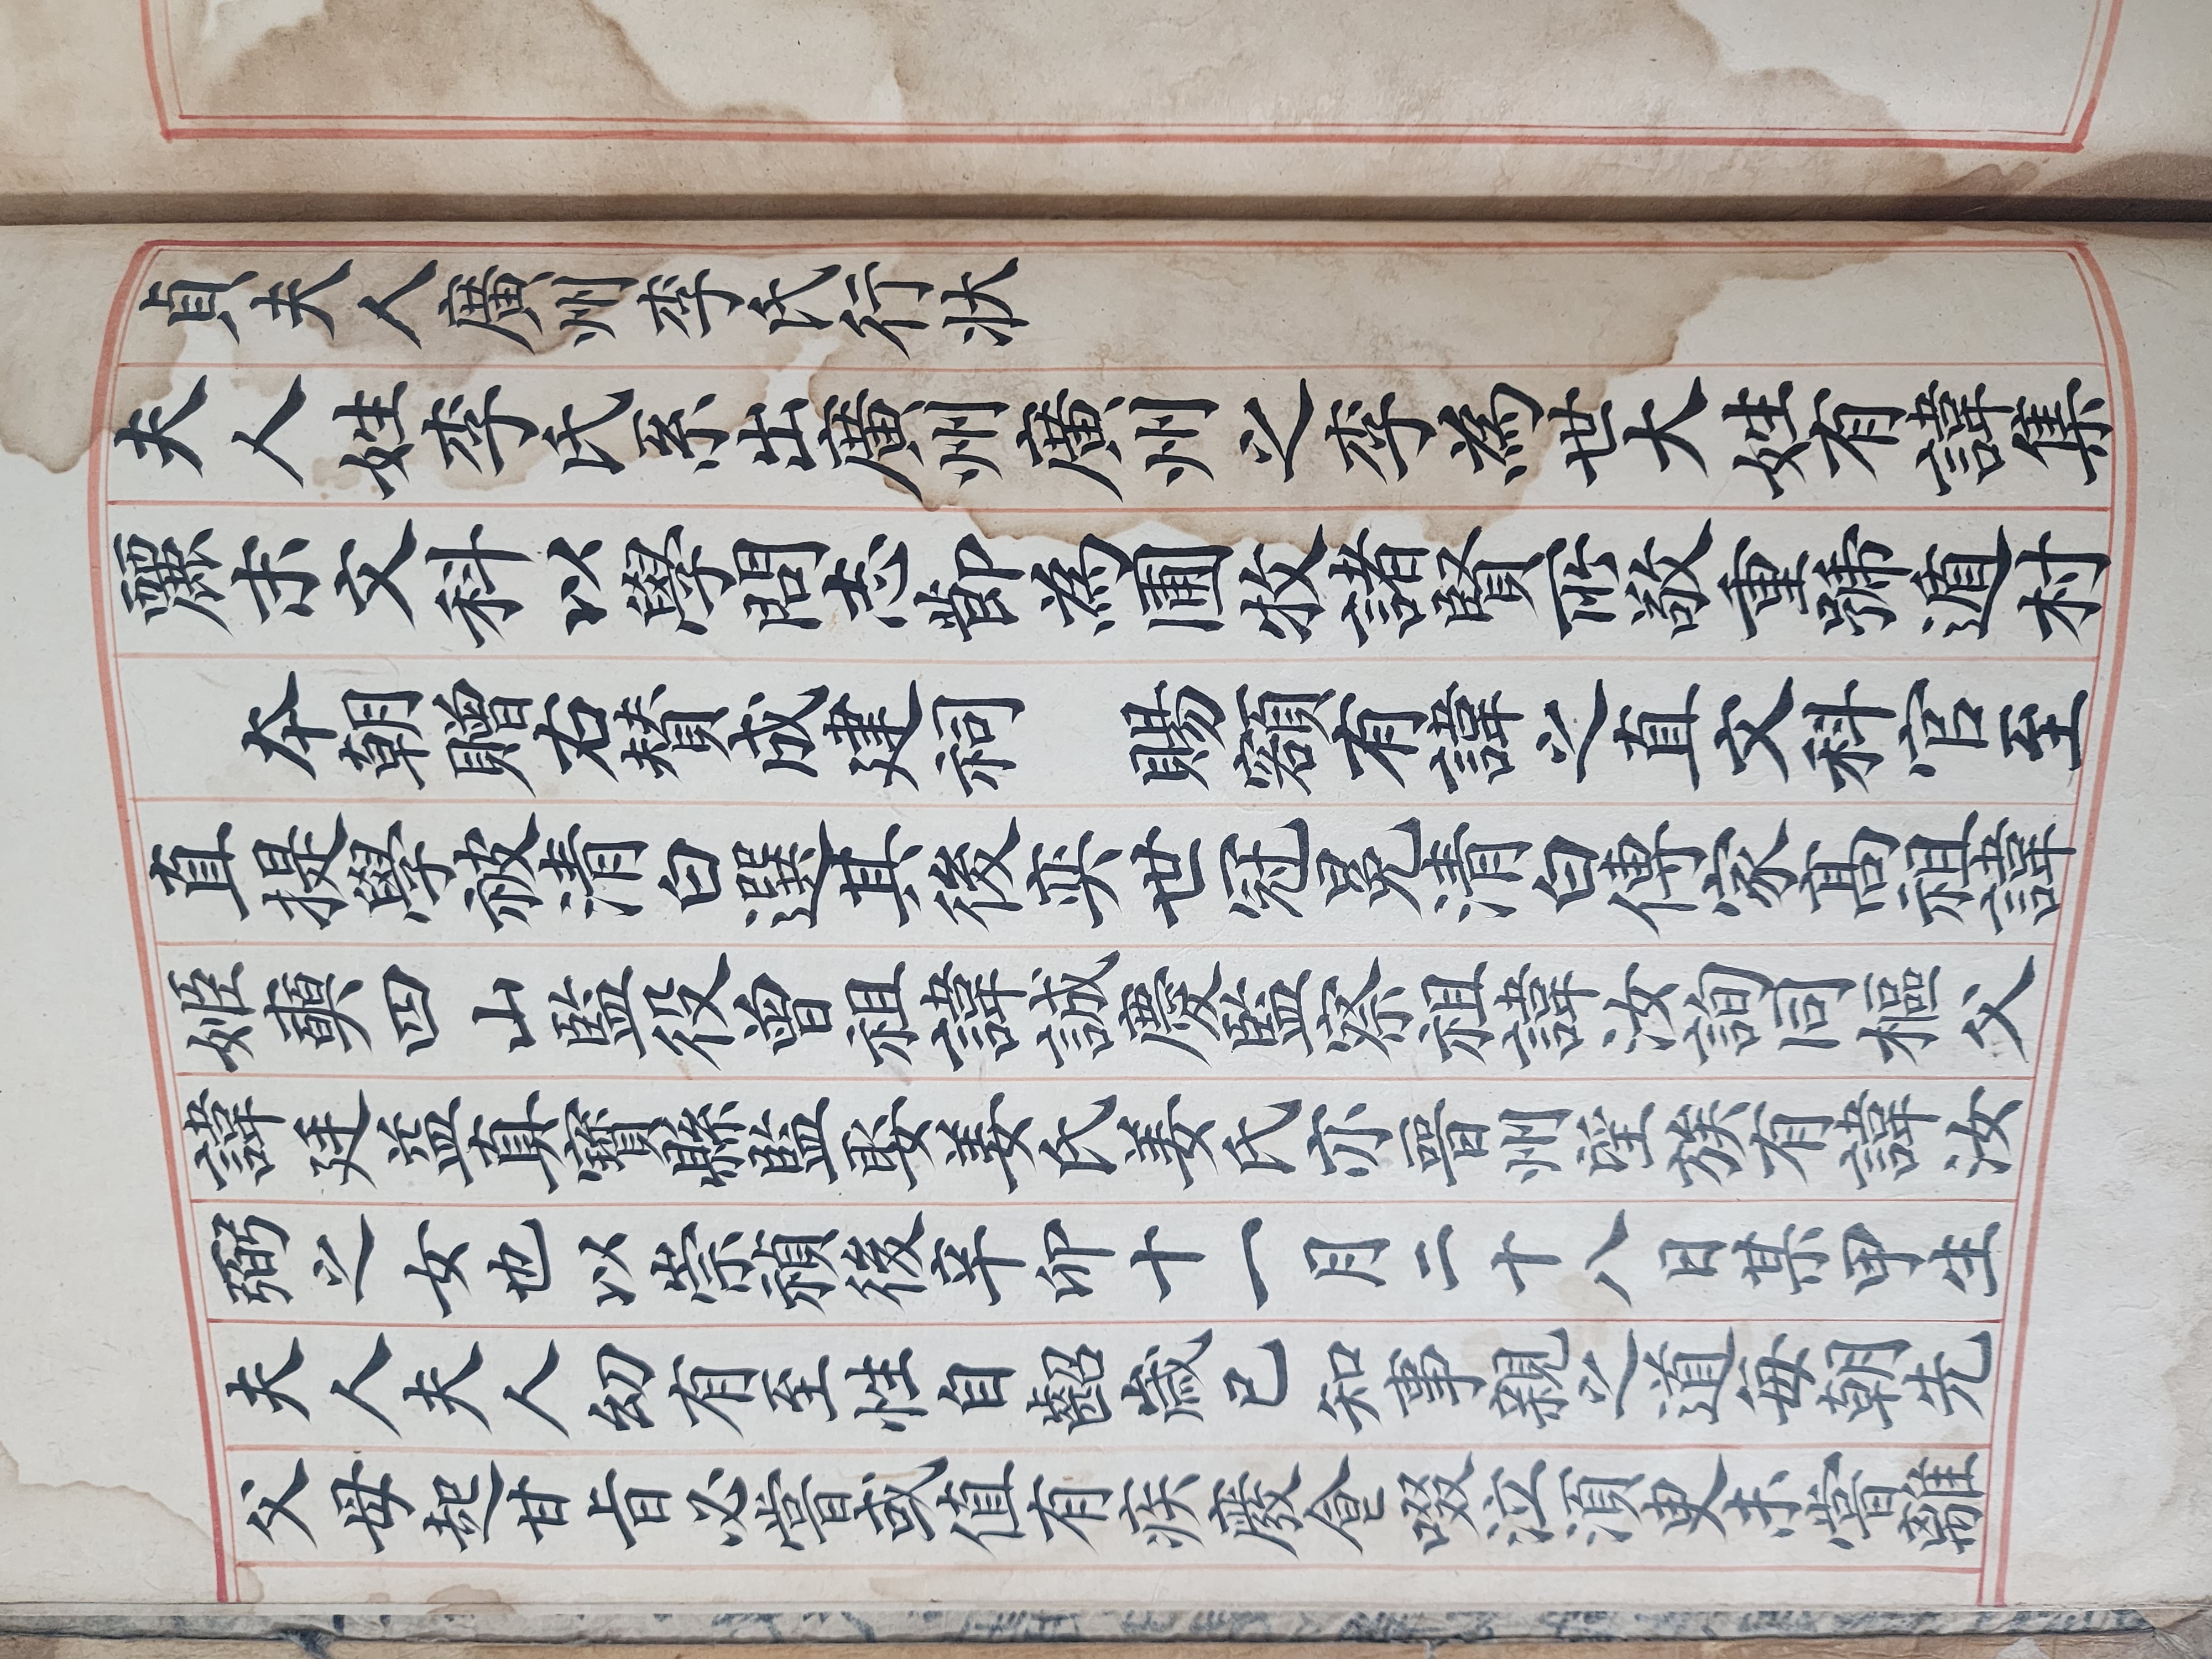 貞夫人廣州李氏行狀
夫人姓李氏系出廣州廣州之李為世大姓有諱集
麗末文科以學問志節為圃牧諸賢所敬重號遁村
本朝贈右贊成建祠 賜額有諱之直文科官至
直提學被清白選其後奕世冠冕清白傳家高祖諱
姬四山監役曾祖諱誠慶監察祖諱汝詢同樞父
諱廷益真寶縣監娶姜氏姜氏亦晉州望族有諱汝
弼之女也以崇禎後辛卯十一月二十八日某甲生
夫人夫人幼有至性自齠歲已知事親之道每朝先
父母起甘旨必嘗或值有疾廢食啜泣須臾未嘗離